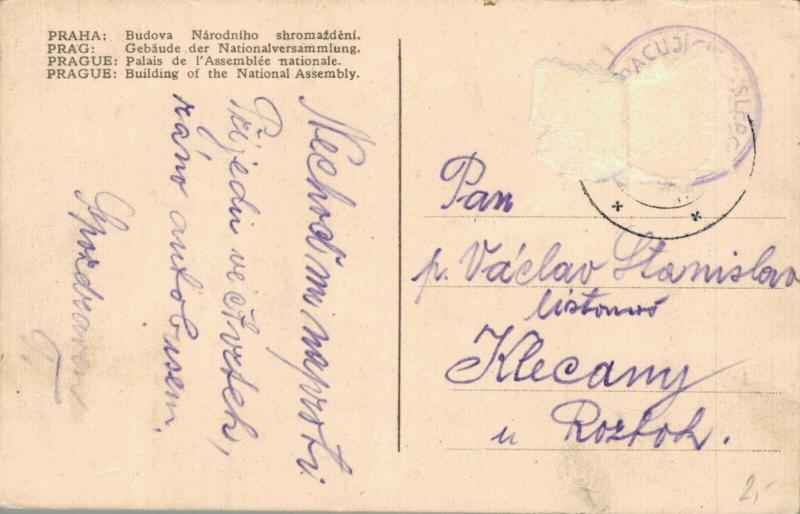 PRAHA: Budova Národního shromaždění.
PRAG: Gebäude der Nationalversammlung.
PRAGUE: Palais de l'Assemblée nationale.
PRAGUE: Building of the National Assembly.
Nechoď mi naproti.
Přijedu ve čtvrtek,
ráno autobusem.
S pozdravem
T.
Pan
p. Václav Stanislav
listonoš
Klecany
u Roztok.
2,-